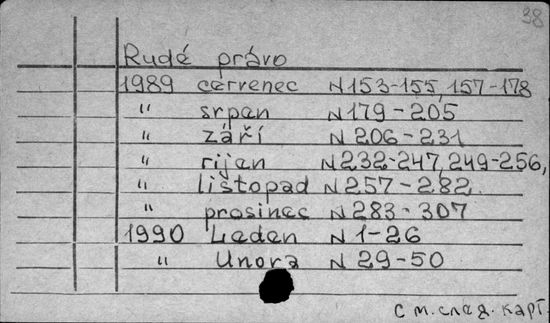 38
Rudé právo
1989 červenec N 153-155, 157-178
" srpan N 179-205
" září N 206-231
" rijan N 232-247, 249-256,
" listopad N 257-282
" prosinec N 283-307
1990 Leden N 1-26
" Unora N 29-50
См. след. карт.